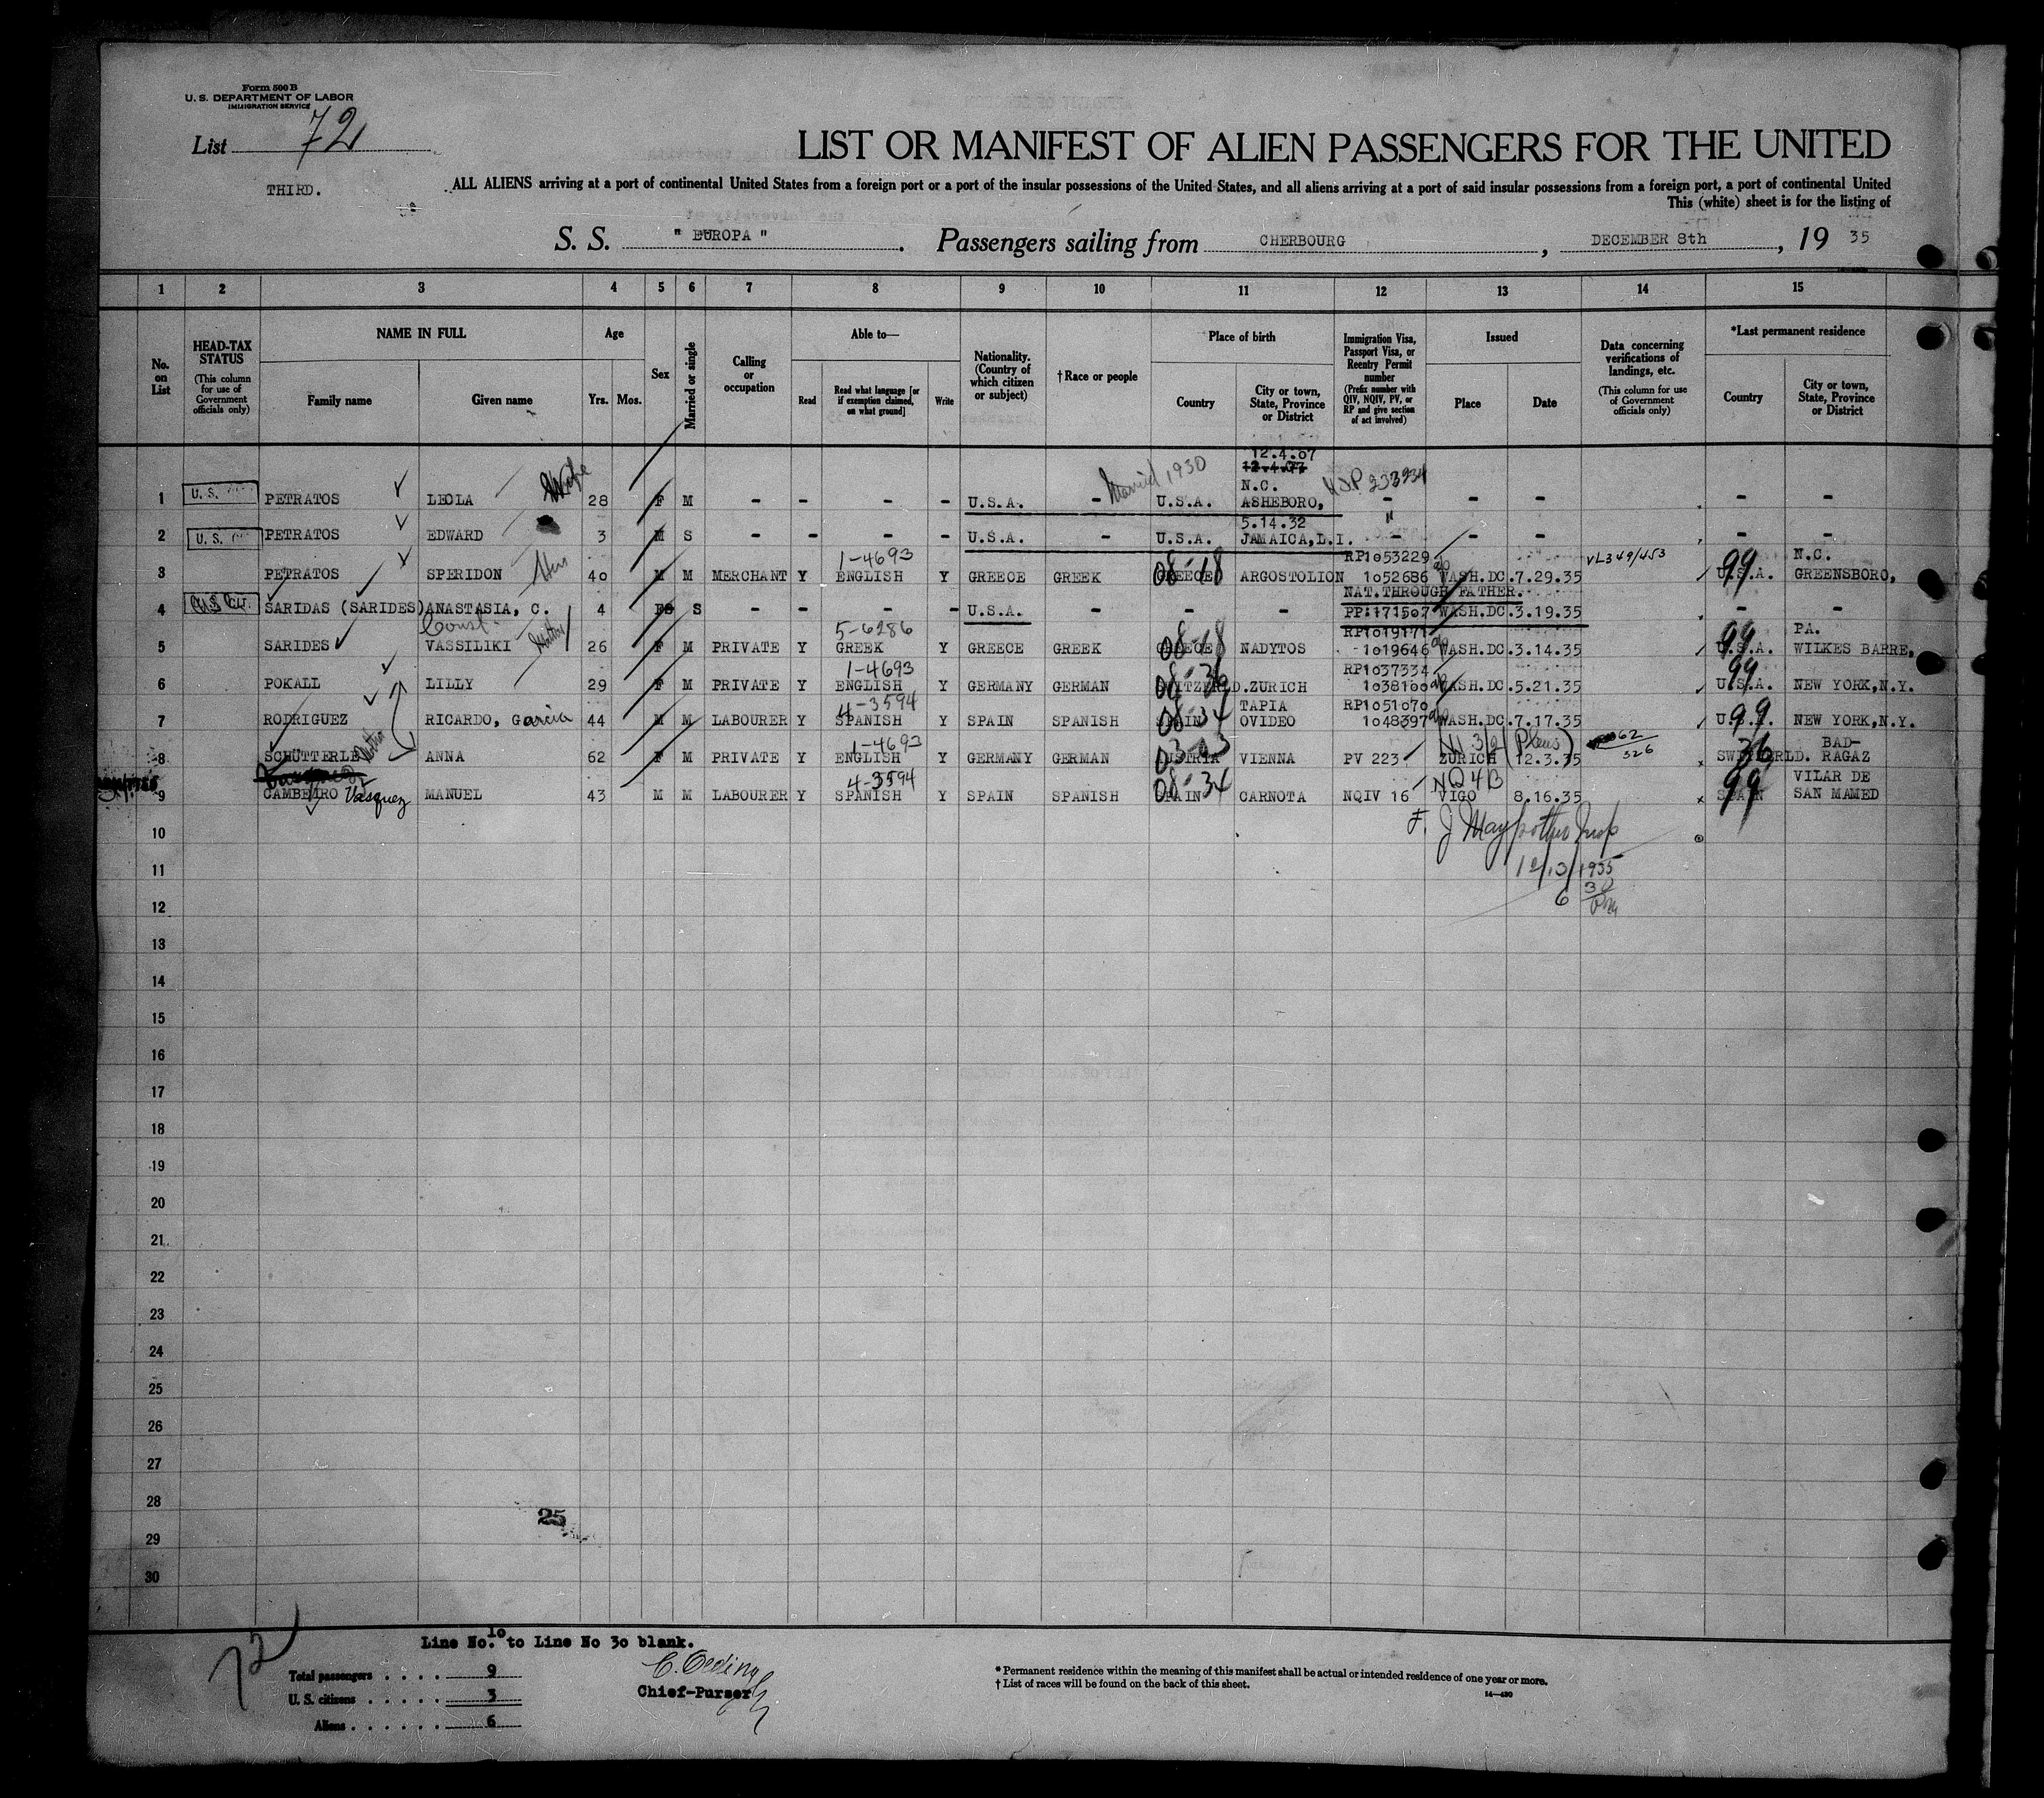 Form 500 B
U. S. DEPARTMENT OF LABOR
IMMIGRATION SERVICE
List 72
THIRD.
LIST OR MANIFEST OF ALIEN PASSENGERS FOR THE UNITED
ALL ALIENS arriving at a port of continental United States from a foreign port or a port of the insular possessions of the United States, and all aliens arriving at a port of said insular possessions from a foreign port, a port of continental United
This (white) sheet is for the listing of
S. S. " EUROPA ". Passengers sailing from CHERBOURG, DECEMBER 8th, 19 35
1 2 3 4 5 6 7 8 9 10 11 12 13 14 15
No. on List
HEAD-TAX STATUS (This column for use of Government officials only)
NAME IN FULL
Family name Given name
Age
Yrs. Mos.
Sex
Married or single
Calling or occupation
Able to—
Read Read what language [or if exemption claimed, on what ground] Write
Nationality. (Country of which citizen or subject)
†Race or people
Place of birth
Country City or town, State, Province or District
Immigration Visa, Passport Visa, or Reentry Permit number (Prefix number with QIV, NQIV, PV, or RP and give section of act involved)
Issued
Place Date
Data concerning verifications of landings, etc. (This column for use of Government officials only)
*Last permanent residence
Country City or town, State, Province or District
12.4.07
12.4.77
Married 1930 N.C.
1 U.S. PETRATOS LEOLA Wife 28 F M - - - - U.S.A. - U.S.A. ASHEBORO, USP. 233934 - - - -
5.14.32
2 U.S. PETRATOS EDWARD 3 M S - - - - U.S.A. - U.S.A. JAMAICA,L.I. " - - - -
1-4693 RP1053229 VL349/453 N.C.
3 PETRATOS SPERIDON 40 M M MERCHANT Y ENGLISH Y GREECE GREEK GREECE 08-18 ARGOSTOLION 1052686 WASH.DC. 7.29.35 U.S.A. 99 GREENSBORO,
NAT.THROUGH FATHER.
4 SARIDAS (SARIDES) ANASTASIA, C. 4 F S - - - - U.S.A. - - - PP:171507 WASH.DC. 3.19.35 - -
Const. 5-6286 RP1019171 PA.
5 SARIDES VASSILIKI Mother 26 F M PRIVATE Y GREEK Y GREECE GREEK GREECE 08-18 NADYTOS 1019646 WASH.DC. 3.14.35 U.S.A. 99 WILKES BARRE,
1-4693 RP1037334
6 POKALL LILLY 29 F M PRIVATE Y ENGLISH Y GERMANY GERMAN SWITZERLD. 08-36 ZURICH 1038100 WASH.DC. 5.21.35 U.S.A. 99 NEW YORK,N.Y.
4-3594 TAPIA RP1051070
7 RODRIGUEZ RICARDO, Garcia 44 M M LABOURER Y SPANISH Y SPAIN SPANISH SPAIN 08-34 OVIDEO 1048397 WASH.DC. 7.17.35 U.S.A. 99 NEW YORK,N.Y.
1-4693 62/326 BAD-
8 SCHÜTTERLE ANNA 62 F M PRIVATE Y ENGLISH Y GERMANY GERMAN AUSTRIA 03-03 VIENNA PV 223 ZURICH 12.3.35 SWITZERLD. 36 RAGAZ
4-3594 NQ 4B VILAR DE
9 CAMBEIRO Vasquez MANUEL 43 M M LABOURER Y SPANISH Y SPAIN SPANISH SPAIN 08-34 CARNOTA NQIV 16 VIGO 8.16.35 SPAIN 99 SAN MAMED
10
12/13/1935
11
6 30
12
13
14
15
16
17
18
19
20
21
22
23
24
25
26
27
28
25
29
30
72
Line No. 10 to Line No 30 blank.
Total passengers . . . . 9
U. S. citizens . . . . . 3
Aliens . . . . . . 6
Chief-Purser
* Permanent residence within the meaning of this manifest shall be actual or intended residence of one year or more.
† List of races will be found on the back of this sheet.
14—430